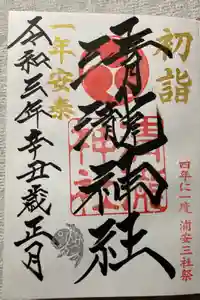 初詣
四年に一度 浦安三社祭
清瀧神社
一年安泰
令和三年辛丑歳正月